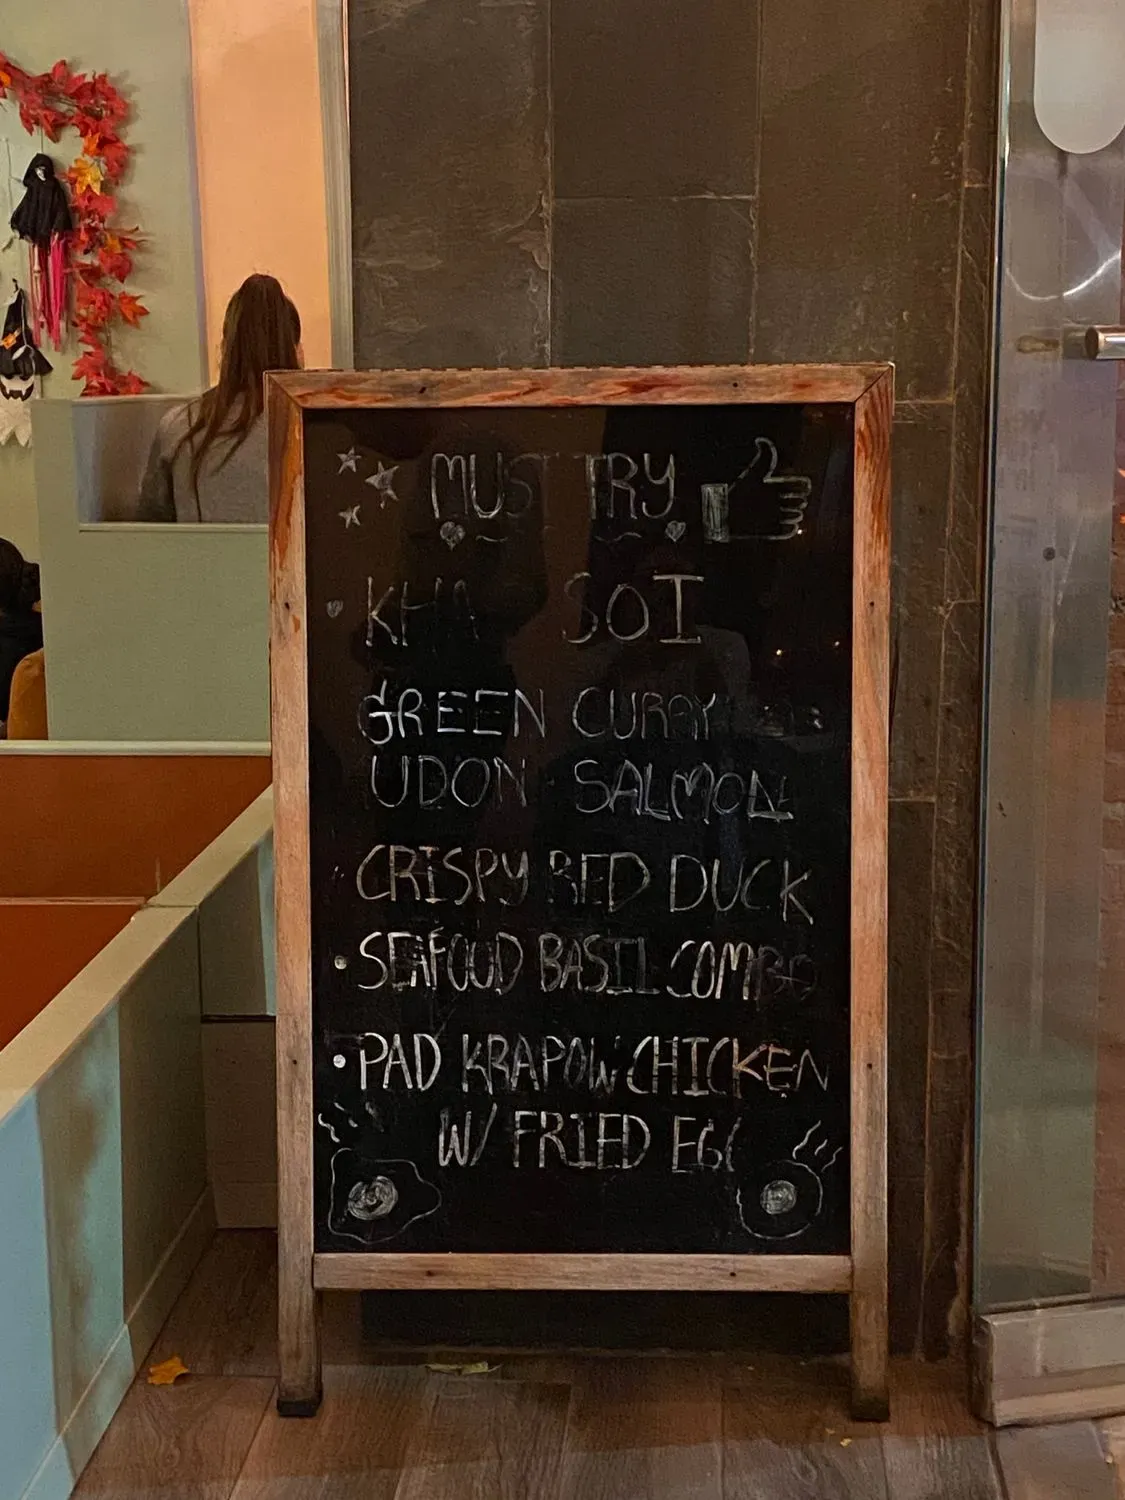 MUST TRY
KHA SOI
GREEN CURRY
UDON SALMON
CRISPY RED DUCK
• SEAFOOD BASIL COMBO
• PAD KRAPOW CHICKEN
W/ FRIED EGG